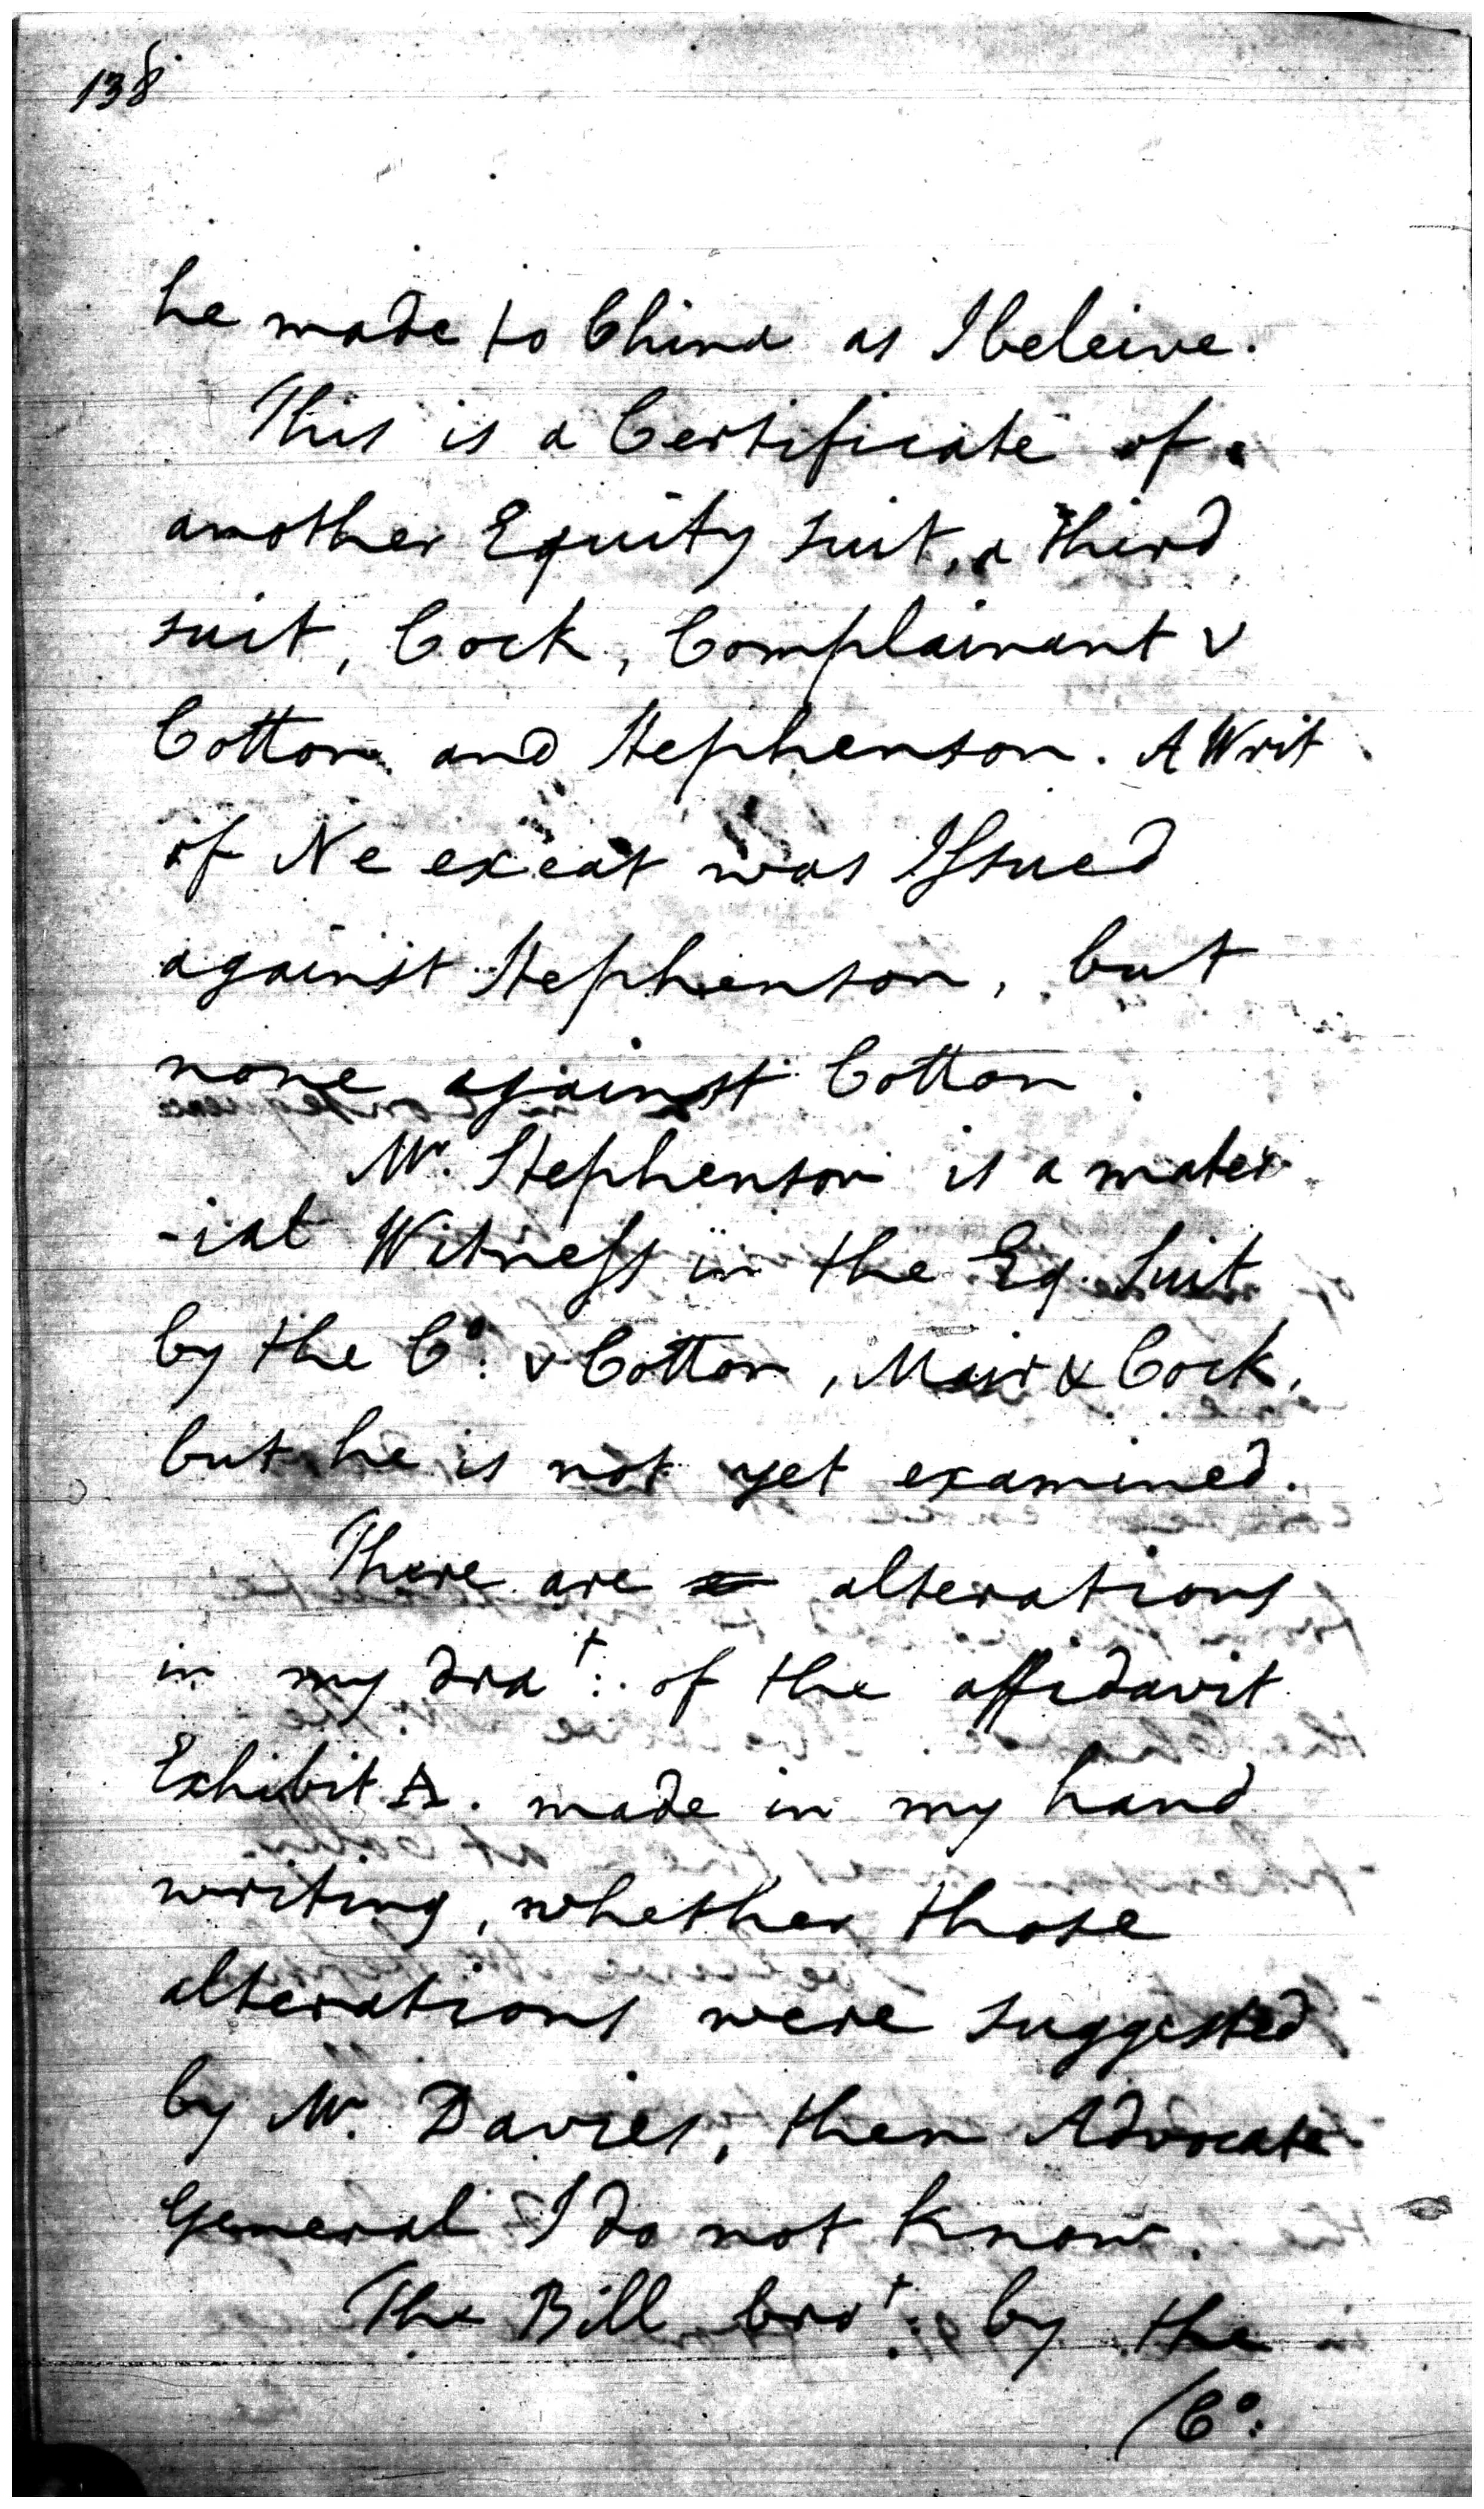 138
he made to China as I beleive.
This is a Certificate of
another Equity suit, a third
suit, Cock, Complainant v
Cotton and Stephenson. A Writ
of Ne exeat was Issued
against Stephenson, but
none against Cotton.
Mr. Stephenson is a mater
-ial Witness in the Eq. Suit
by the Co: v Cotton, Muir & Cock,
but he is not yet examined.
There are alterations
in my drat: of the affidavit
Exhibit A. made in my hand
writing, whether those
alterations were suggested
by Mr. Davies, then Advocate
General I do not know.
The Bill brot: by the
/Co: